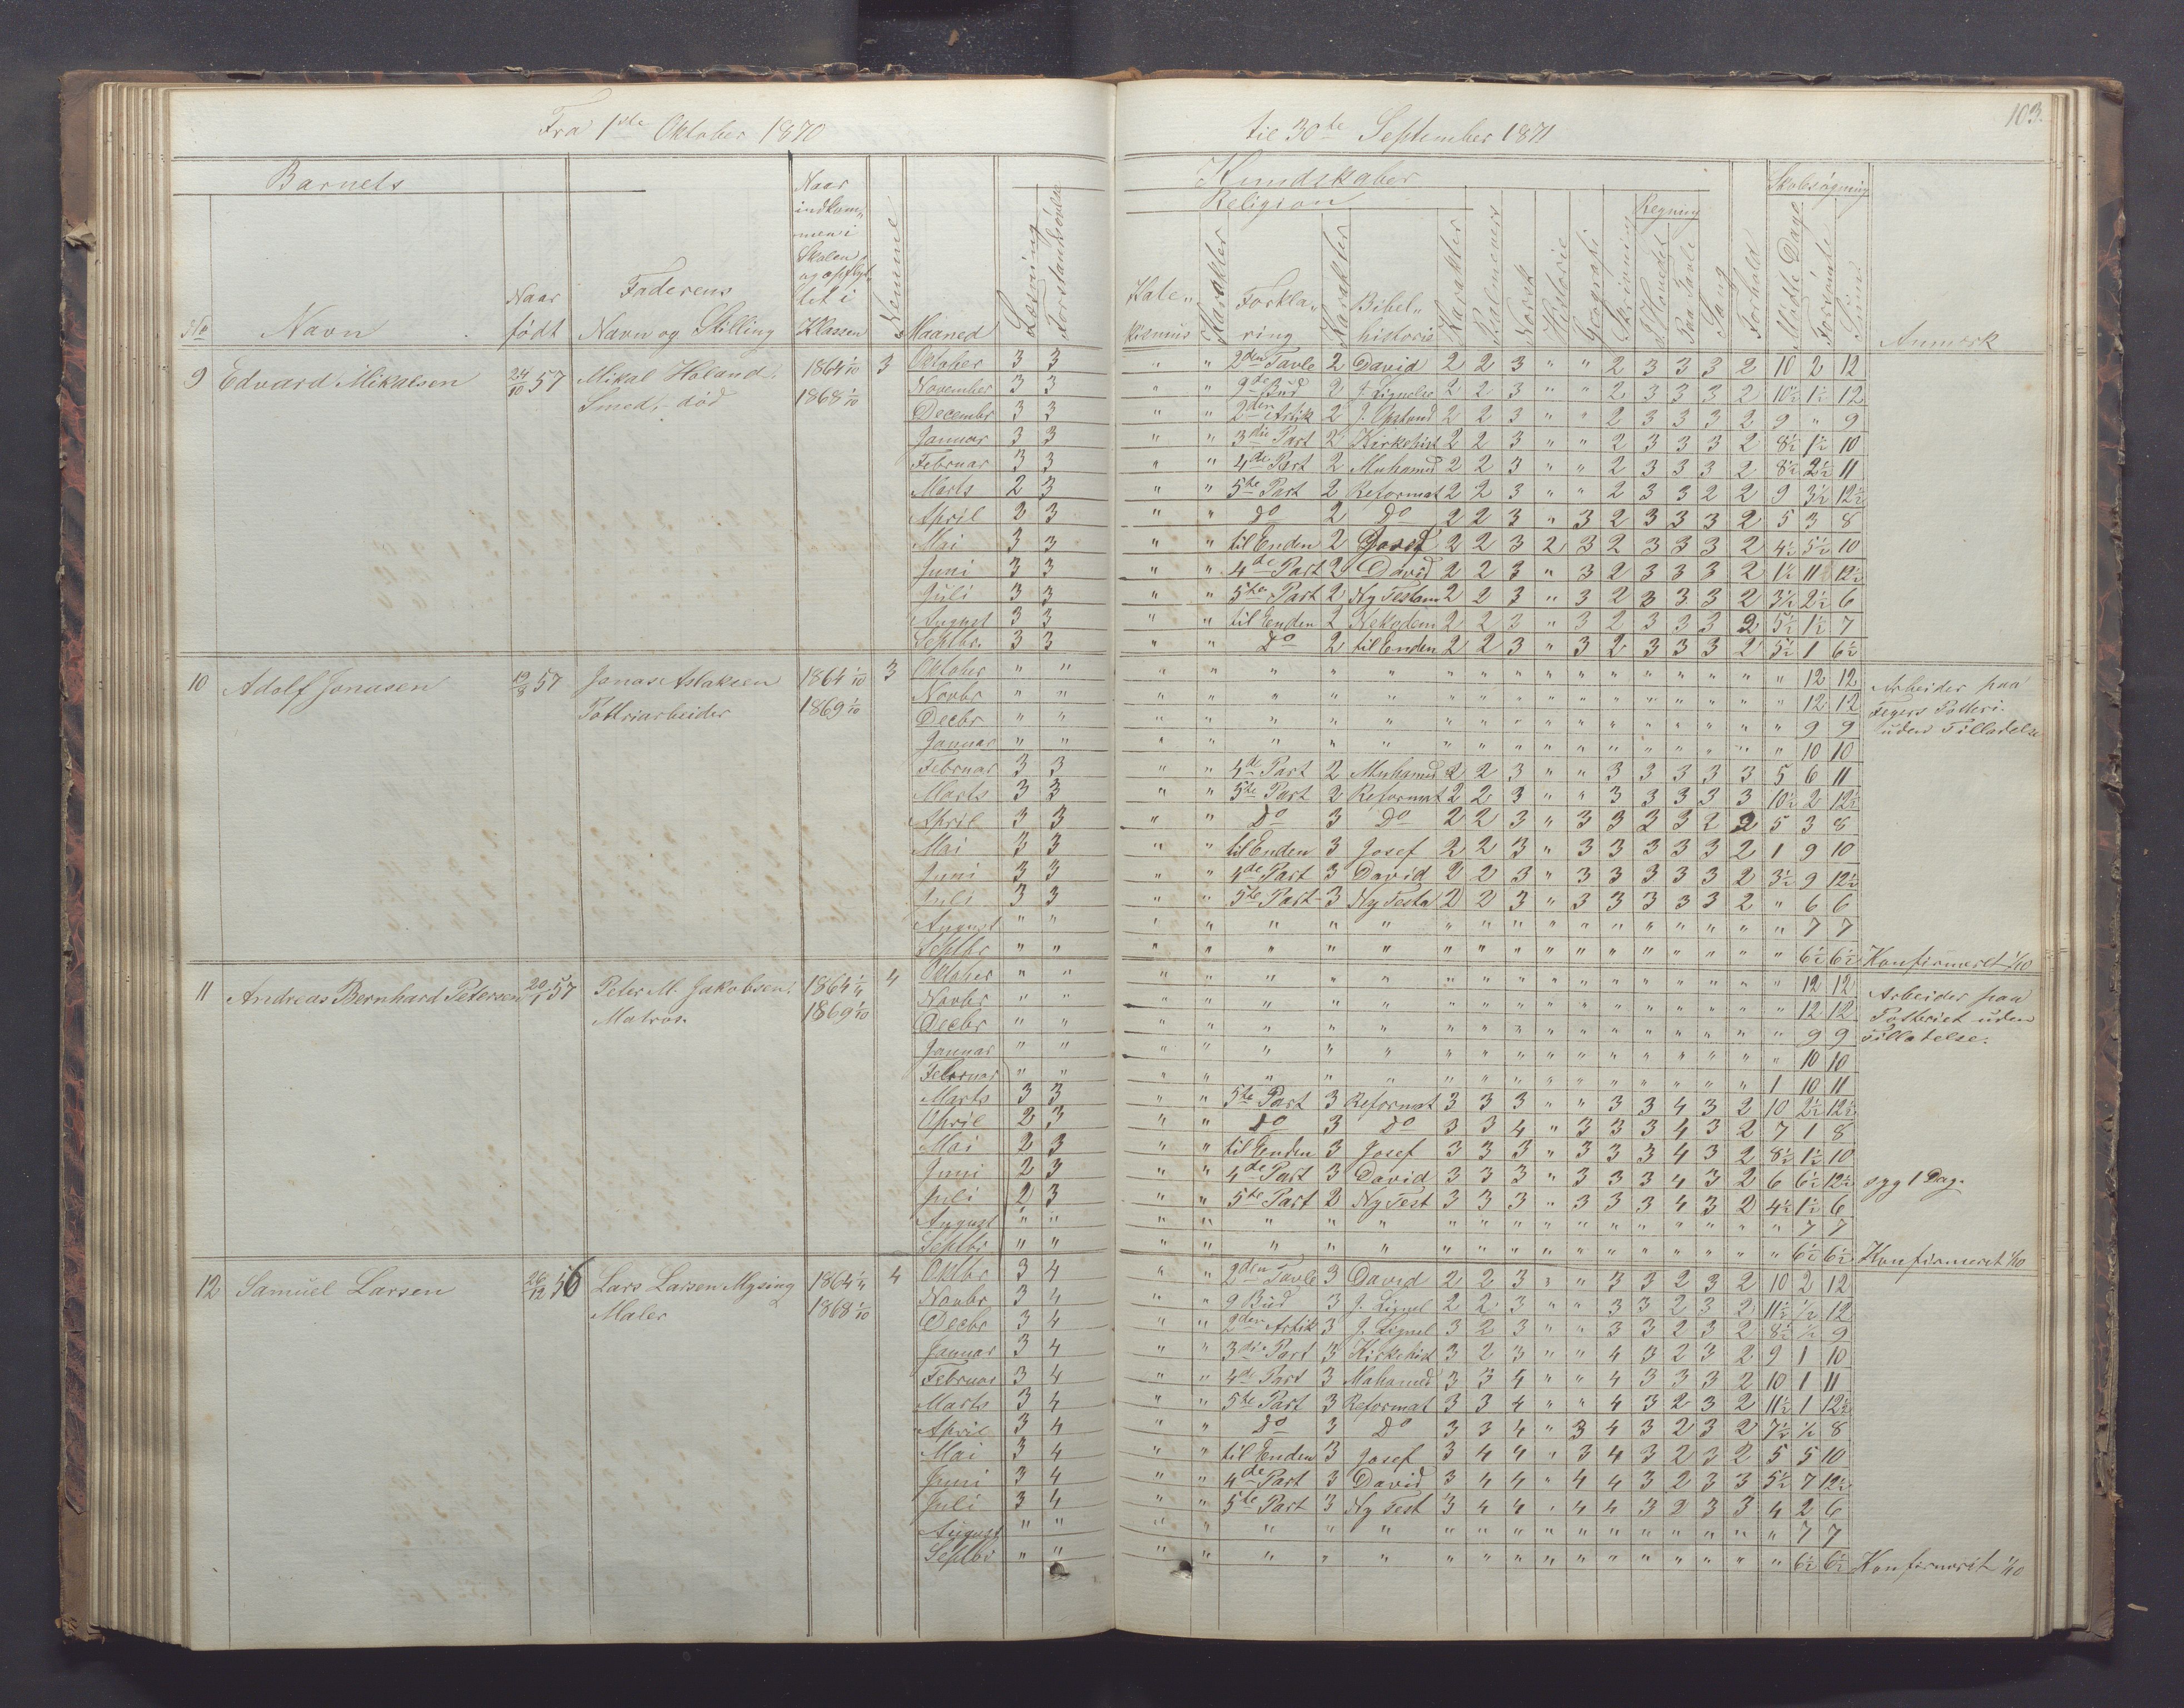 103.
Fra 1ste Oktober 1870 til 30te September 1871
Barnets Kundskaber Skolesøgning
Religion Regning
No Navn Naar født Faderens Navn og Stilling Naar indkommen i Skolen og opflyttet i Klassen Evnerne Maaned Læsning Forstandsøvelse Katekismus Karakter Forklaring Karakter Bibelhistorie Karakter Psalmevers Norsk Historie Geografi Skrivning I Hovedet Paa Tavle Sang Forhold Mødte Dage Forsømte Sum Anmærk
9 Edvard Mikalsen 24/10 57 Mikal Holand. 1864 1/10 3 Oktober 3 3 " " 2den Tavle 2 David 2 2 3 " " 2 3 3 3 2 10 2 12
Smed, død 1868 1/10 November 3 3 " " 9de Bud 2 J. Lignelse 2 2 3 " " 2 3 3 3 2 10½ 1½ 12
Decembr 3 3 " " 2den Artik 2 J. Opstand 2 2 3 " " 2 3 3 3 2 9 " 9
Januar 3 3 " " 3die Part 2 Kirkehist 2 2 3 " " 2 3 3 3 2 8½ 1½ 10
Februar 3 3 " " 4de Part 2 Muhamed 2 2 3 " " 2 3 3 3 2 8½ 2½ 11
Marts 2 3 " " 5te Part 2 Reformat 2 2 3 " " 2 3 3 2 2 9 3½ 12½
April 2 3 " " Do 2 Do 2 2 3 " 3 2 3 3 3 2 5 3 8
Mai 3 3 " " til Enden 2 Josef 2 2 3 2 3 2 3 3 3 2 4½ 5½ 10
Juni 3 3 " " 4de Part 2 David 2 2 3 " 3 2 3 3 3 2 1½ 11 12½
Juli 3 3 " " 5te Part 2 Ny Testam 2 2 3 " 3 2 3 3 3 2 3½ 2½ 6
August 3 3 " " til Enden 2 Nekodem 2 2 3 " 3 2 3 3 3 2 5½ 1½ 7
Septbr. 3 3 " " Do 2 til Enden 2 2 3 " 3 2 3 3 3 2 5½ 1 6½
10 Adolf Jonasen 19/8 57 Jonas Aslaksen 1864 1/10 3 Oktober " " " " " " " " " " " " " " " " " " " 12 12 Arbeider paa
Pottriarbeider 1869 1/10 Novbr " " " " " " " " " " " " " " " " " " " 12 12 Fegers Potteri.
Decbr " " " " " " " " " " " " " " " " " " " 9 9 uden Tilladelse
Januar " " " " " " " " " " " " " " " " " " " 10 10
Februar 3 3 " " 4de Part 2 Muhamed 2 2 3 " " 3 3 3 3 3 5 6 11
Marts 3 3 " " 5te Part 2 Reformat 2 2 3 " " 3 3 3 3 3 10½ 2 12½
April 3 3 " " Do 3 Do 2 2 3 " 3 3 3 3 2 2 5 3 8
Mai 3 3 " " til Enden 3 Josef 2 2 3 " 3 3 3 3 3 2 1 9 10
Juni 3 3 " " 4de Part 3 David 2 2 3 " 3 3 3 3 3 2 3½ 9 12½
Juli 3 3 " " 5te Part 3 Ny Testa 2 2 3 " 3 3 3 3 3 2 " 6 6
August " " " " " " " " " " " " " " " " " " " 7 7
Septbr " " " " " " " " " " " " " " " " " " " 6½ 6½ Konfirmeret 1/10
11 Andreas Bernhard Petersen 20/1 57 Peter M. Jakobsen. 1864 1/4 4 Oktober " " " " " " " " " " " " " " " " " " " 12 12 Arbeider paa
Matros. 1869 1/10 Novbr " " " " " " " " " " " " " " " " " " " 12 12 Potteriet uden
Decbr " " " " " " " " " " " " " " " " " " " 9 9 Tilladelse.
Januar " " " " " " " " " " " " " " " " " " " 10 10
Februar " " " " " " " " " " " " " " " " " " 1 10 11
Marts 3 3 " " 5te Part 3 Reformat 3 3 3 " " 3 3 4 3 2 10 2½ 12½
April 2 3 " " Do 3 Do 3 3 4 " 3 3 3 4 3 2 7 1 8
Mai 2 3 " " til Enden 3 Josef 3 3 3 " 3 3 3 4 3 2 8½ 1½ 10
Juni 2 3 " " 4de Part 3 David 3 3 3 " 3 3 3 4 3 2 6 6½ 12½ syg 1 Dag.
Juli 2 3 " " 5te Part 2 Ny Test 3 3 3 " 3 3 3 4 3 2 4½ 1½ 6
August " " " " " " " " " " " " " " " " " " " 7 7
Septbr " " " " " " " " " " " " " " " " " " " 6½ 6½ Konfirmeret 1/10
12 Samuel Larsen 26/12 56 Lars Larsen Mysing 1864 1/4 4 Oktbr 3 4 " " 2den Tavle 3 David 2 2 3 " " 3 3 2 3 2 10 2 12
Maler 1868 1/10 Novbr 3 4 " " 9 Bud 3 J. Lignel 2 2 3 " " 3 3 2 3 2 11½ ½ 12
Decbr 3 4 " " 2den Artik 3 J. Lignel 3 2 3 " " 3 3 2 3 2 8½ ½ 9
Januar 3 4 " " 3die Part 3 Kirkehist 3 2 3 " " 4 3 2 3 2 9 1 10
Februar 3 4 " " 4de Part 3 Mahamed 3 3 4 " " 4 3 3 3 2 10 1 11
Marts 3 4 " " 5te Part 3 Reformat 3 3 4 " " 4 3 2 3 2 11½ 1 12½
April 3 4 " " Do 3 Do 3 3 4 " 3 4 3 2 3 2 7½ ½ 8
Mai 3 4 " " til Enden 3 Josef 3 4 4 " 3 4 3 2 3 2 5 5 10
Juni 3 4 " " 4de Part 3 David 3 4 4 " 4 4 3 2 3 3 5½ 7 12½
Juli 3 4 " " 5te Part 3 Ny Test 3 4 4 " 4 4 3 2 3 3 4 2 6
August " " " " " " " " " " " " " " " " " " " 7 7
Septbr " " " " " " " " " " " " " " " " " " " 6½ 6½ Konfirmeret 1/10